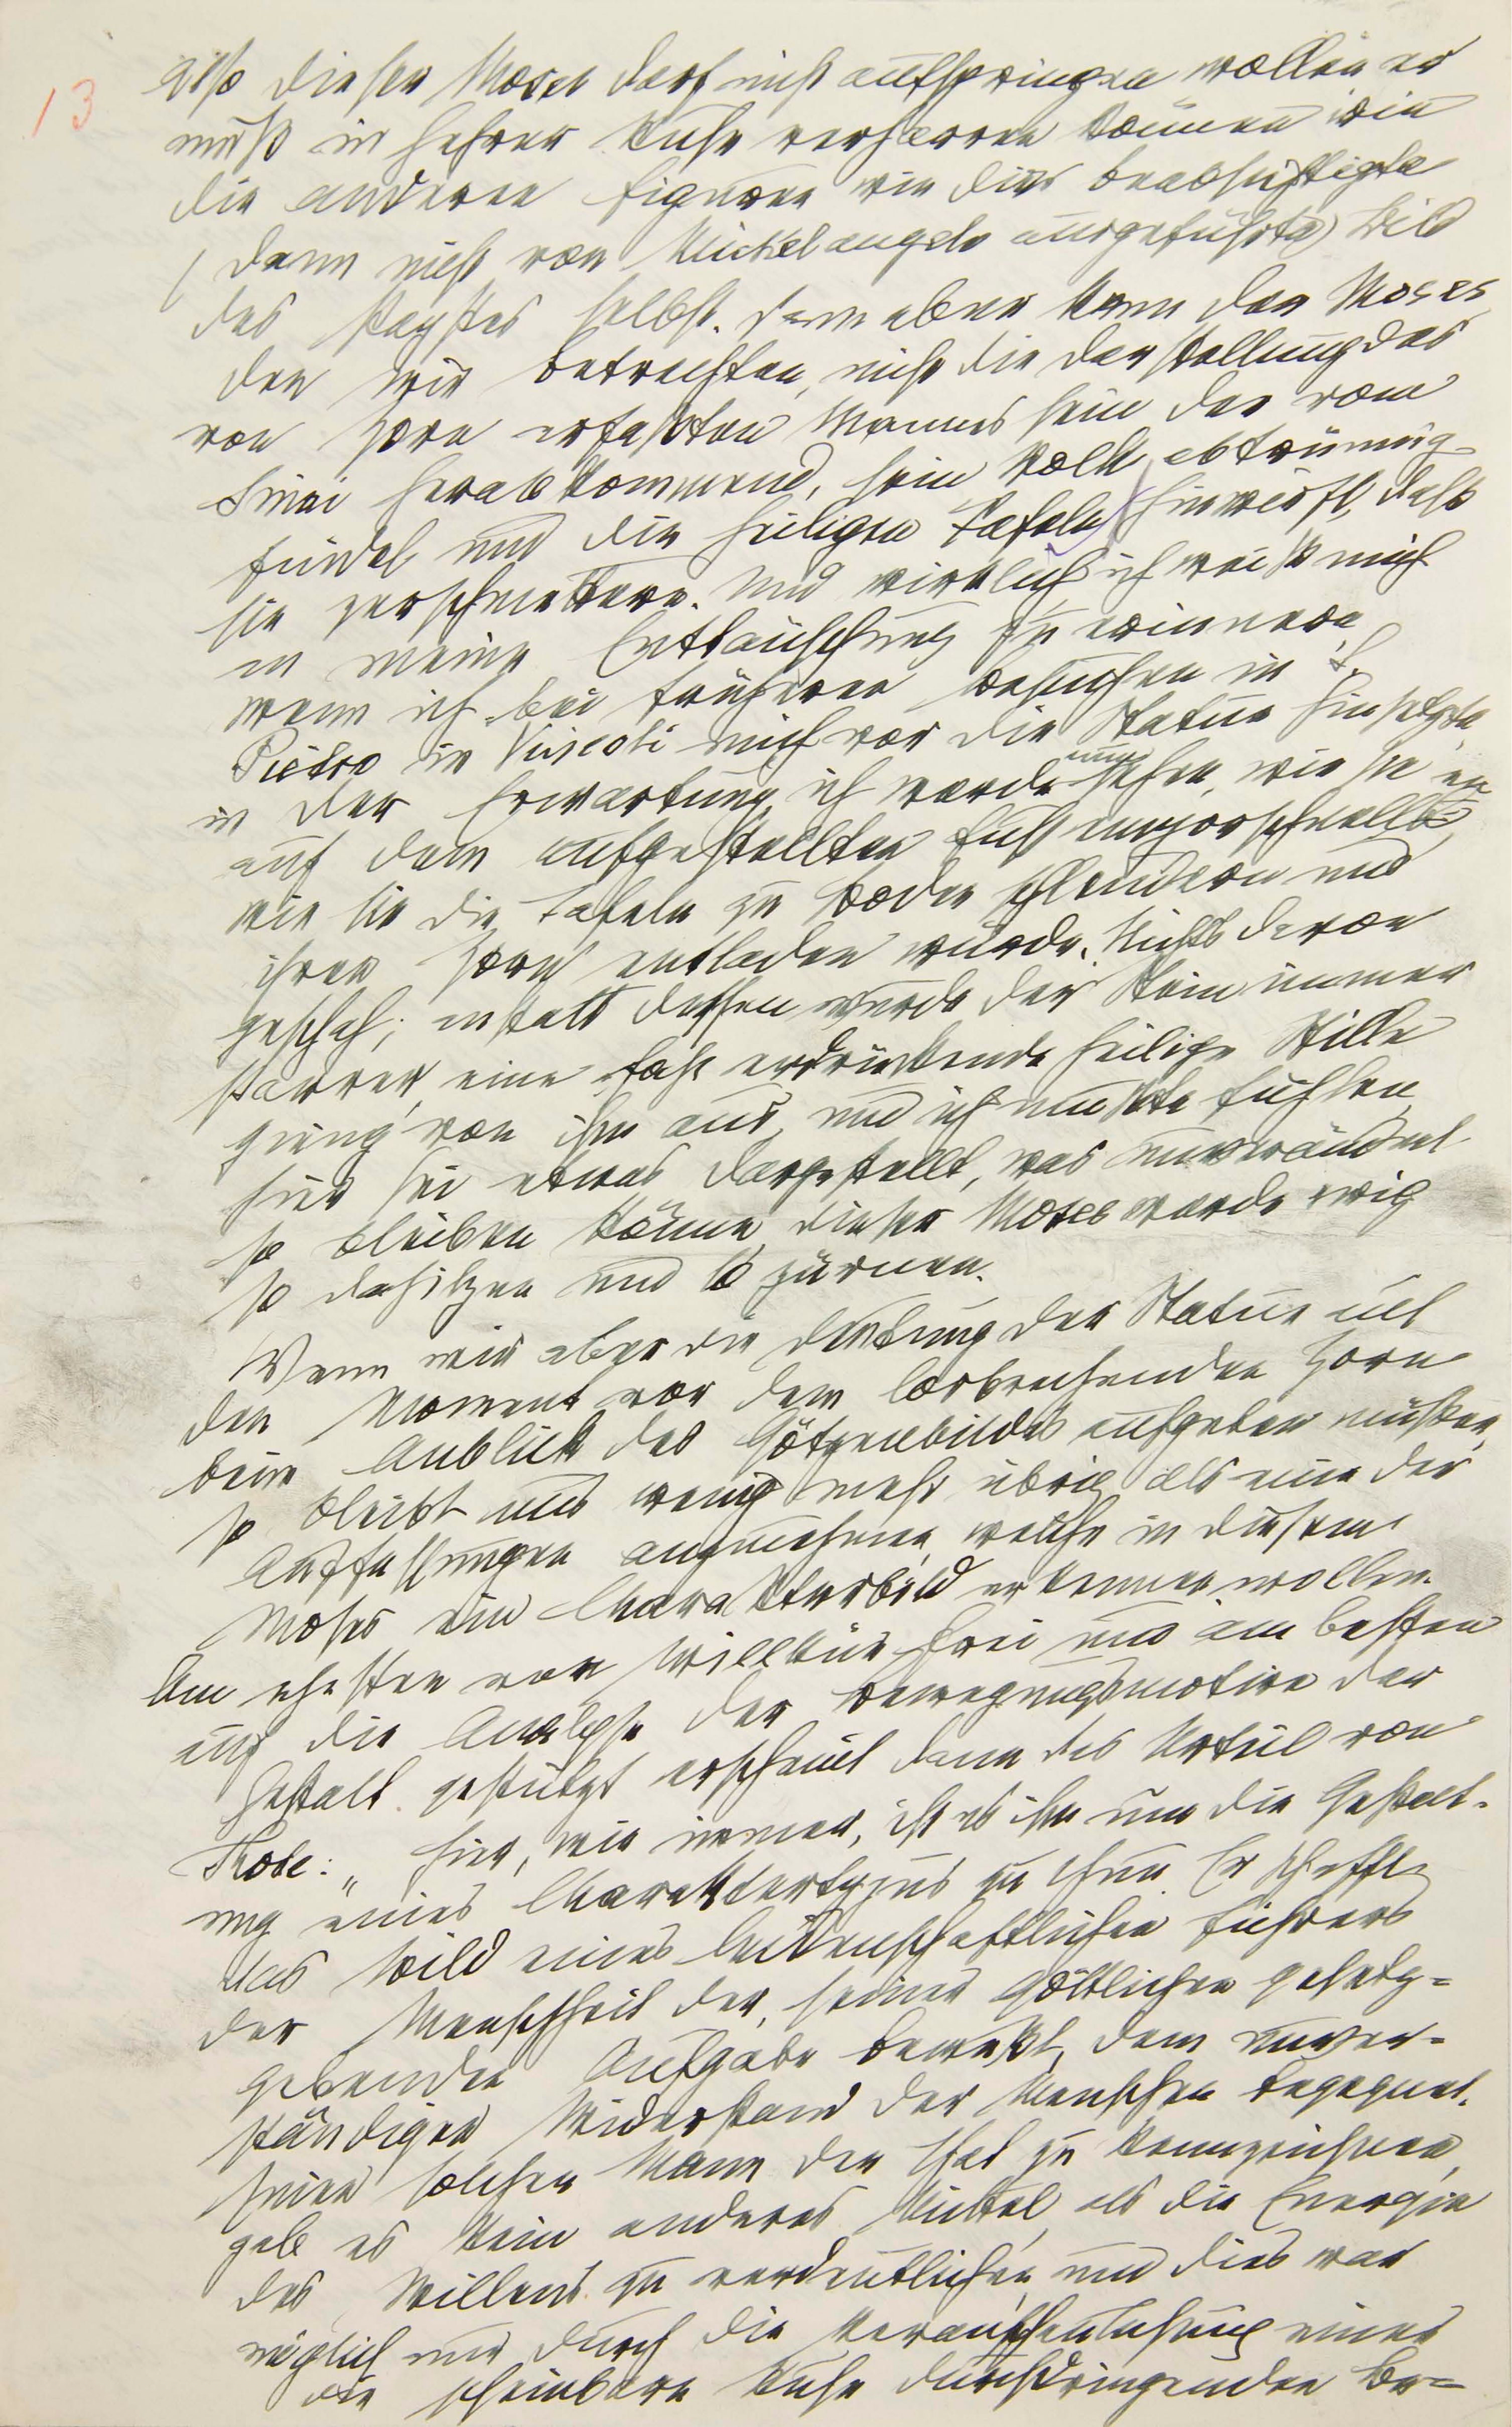 13
Also dieser Moses darf nicht aufspringen wollen er
muß in hehrer Ruhe verharren können wie
die anderen Figuren wie das beabsichtigte
(dann nicht von Michelangelo ausgeführte) Bild
des Papstes selbst. Dann aber kann der Moses
den wir betrachten, nicht die Darstellung des
von Zorn erfaßten Mannes sein der vom
Sinai herabkommend, sein Volk abtrünnig
findet und die heiligen Tafeln hinwirft, daß
sie zerschmettern. Und wirklich ich weiß mich
an meine Enttäuschung zu erinnern,
wenn ich bei früheren Besuchen in S.
Pietro in Vincoli mich vor die Statue hinsetzte,
in der Erwartung, ich werde nun sehen, wie sie
auf dem aufgestellten Fuß emporschnellen,
wie sie die Tafeln zu Boden schleudern und
ihren Zorn entladen würde. Nichts davon
geschah; anstatt dessen wurde der Stein immer
starrer, eine fast erdrückende heilige Stille
ging von ihm aus, und ich mußte fühlen,
hier sei etwas dargestellt, was unverändert
so bleiben könne, dieser Moses werde ewig
so dasitzen und so zürnen.
Wenn wir aber die Deutung der Statue mit
dem Moment vor dem losbrechenden Zorn
beim Anblick des Götzenbildes aufgeben müßen,
so bleibt uns wenig mehr übrig als eine der
Auffassungen anzunehmen, welche in diesem
Moses ein Charakterbild erkennen wollen.
Am ehesten von Willkür frei und am besten
auf die Analyse der Bewegungsmotive der
Gestalt gestützt erscheint dann das Urteil von
Thode: „Hier, wie immer, ist es ihm um die Gestalt-
ung eines Charaktertypus zu thun. Er schafft
das Bild eines leidenschaftlichen Führers
der Menschheit der, seiner göttlichen gesetz=
gebenden Aufgabe bewußt, dem unver=
ständigen Widerstand der Menschen begegnet.
Einen solchen Mann der That zu kennzeichnen,
gab es kein anderes Mittel, als die Energie
des Willens zu verdeutlichen, und dies war
möglich nur durch die Veranschaulichung einer
die scheinbare Ruhe durchdringenden Be=